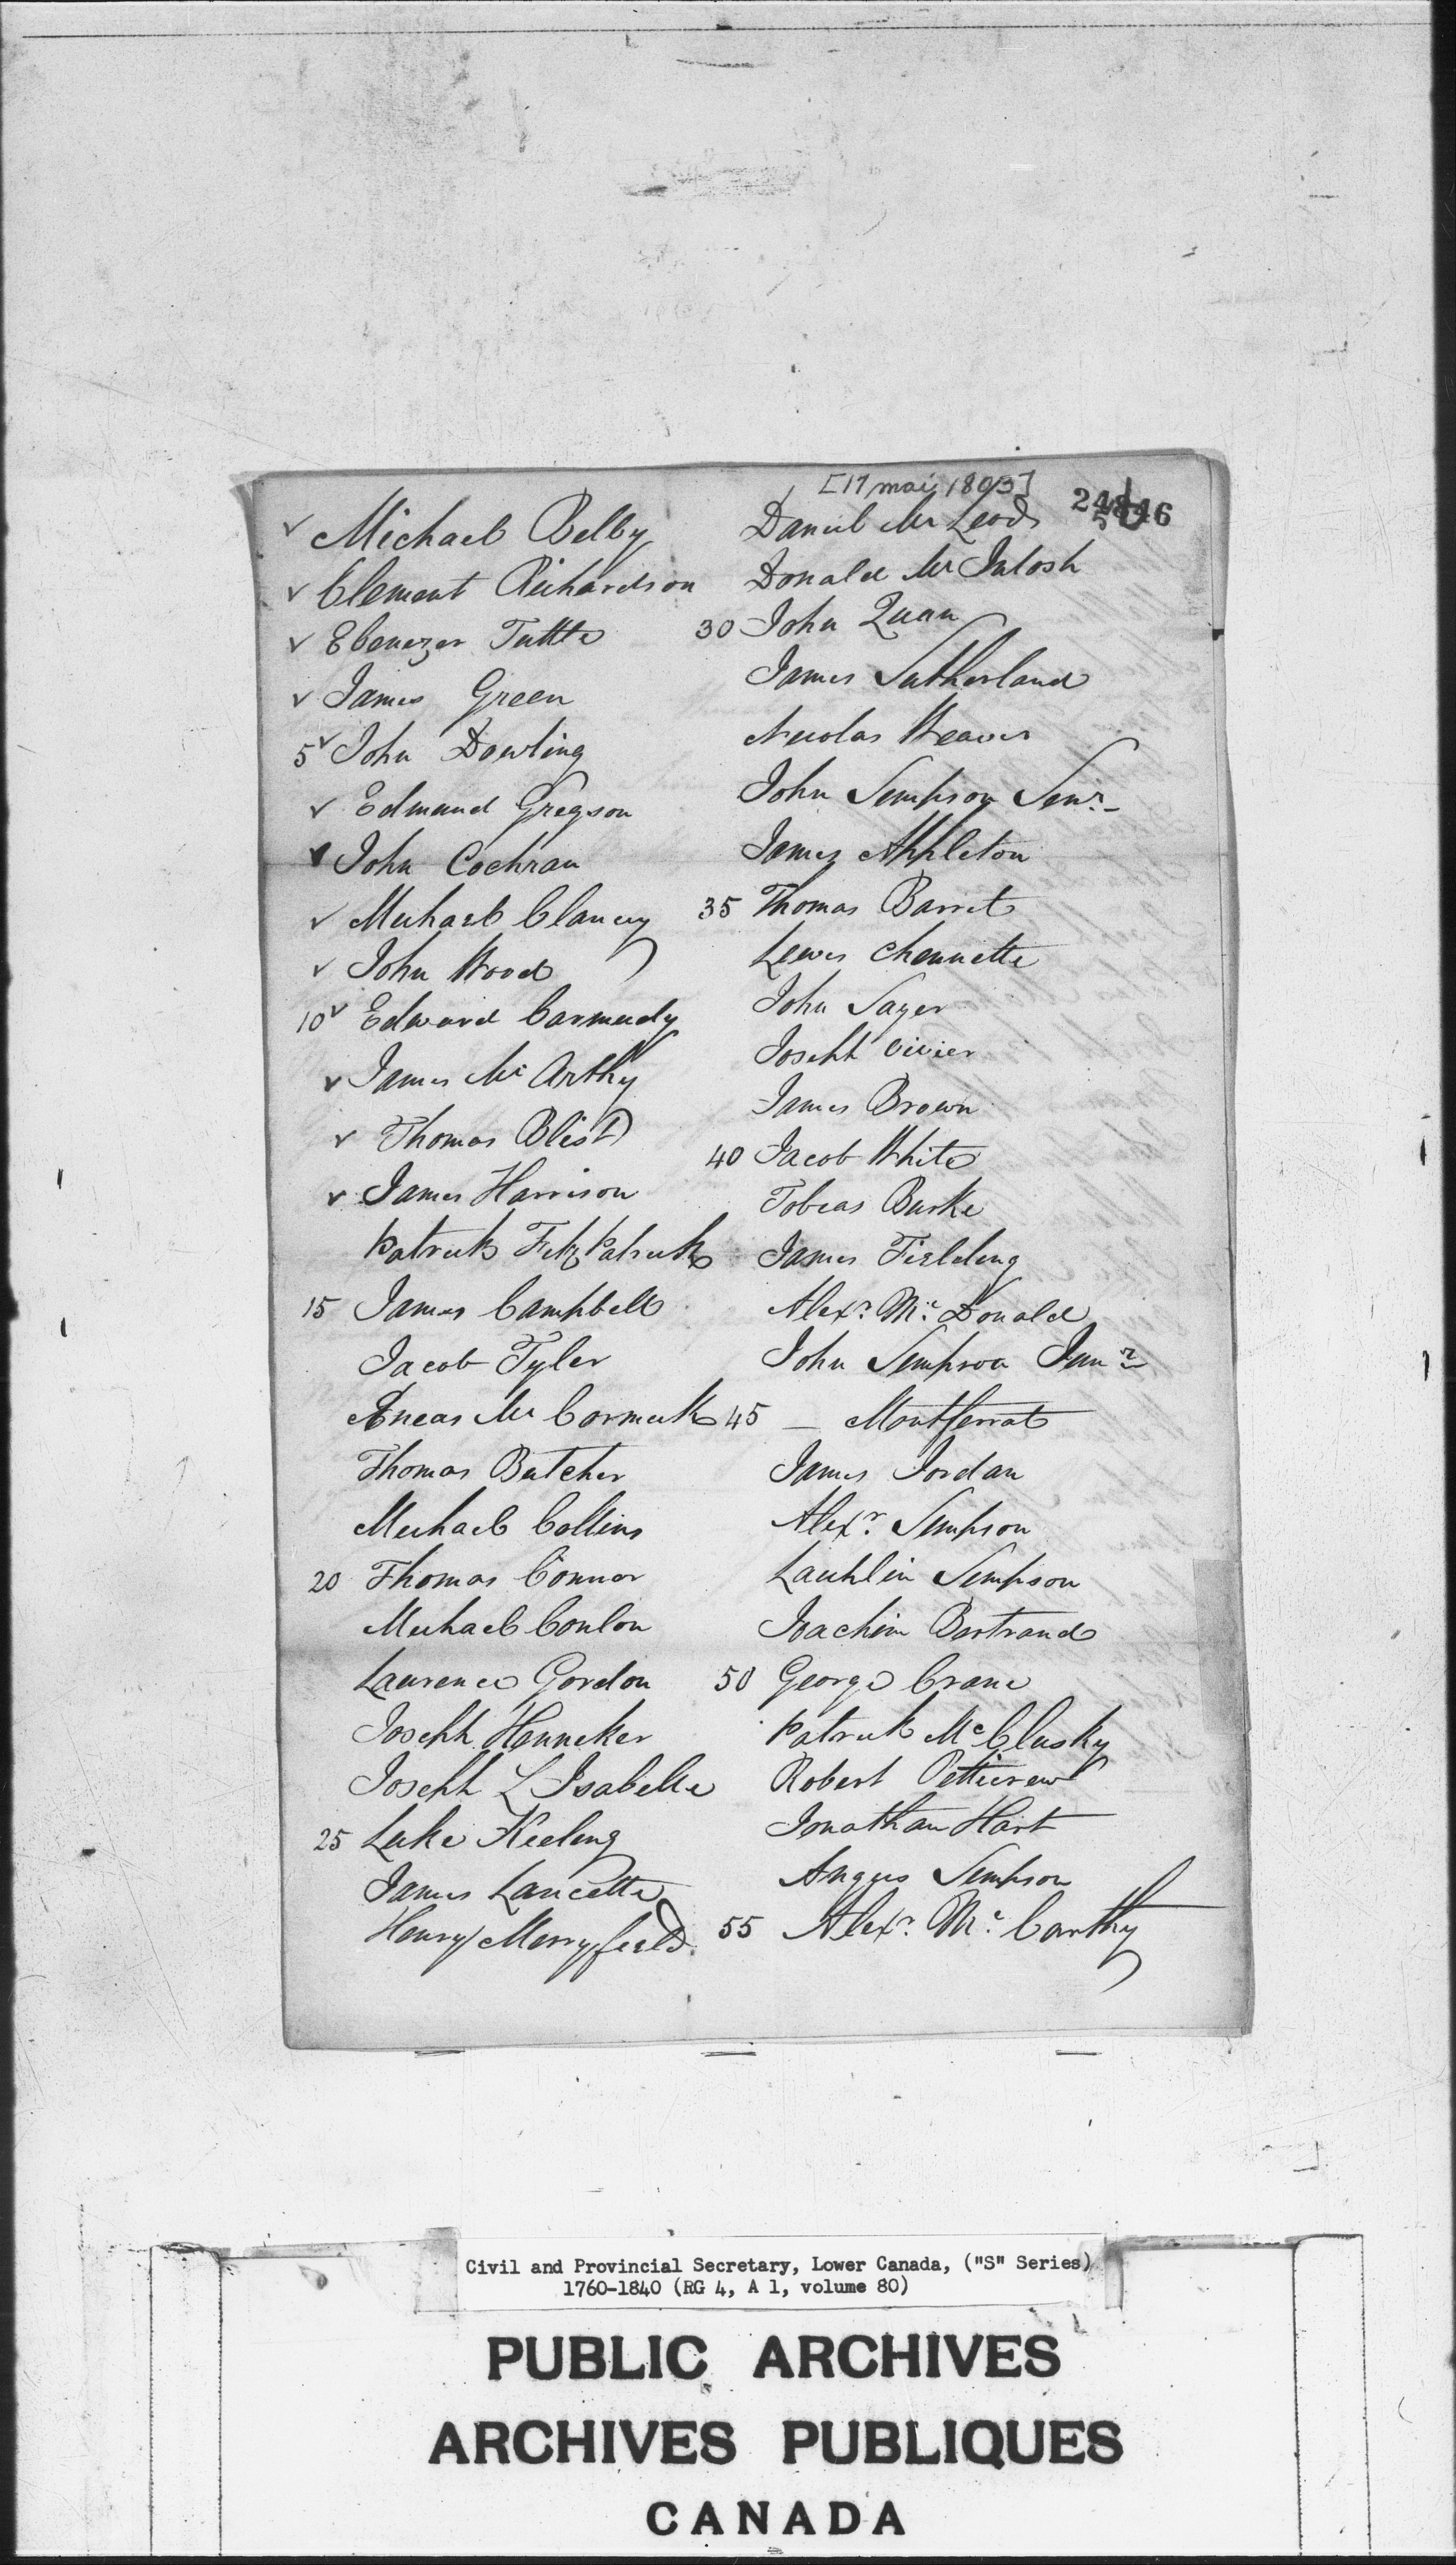 [17 mai 1803]
24846
✓ Michael Belby
✓ Clement Richardson
✓ Ebenezer Tuttle
✓ James Green
5 ✓ John Dowling
✓ Edmund Gregson
✓ John Cochran
✓ Michael Clancy
✓ John Wood
10 ✓ Edward Carmudy
✓ James Mc Arthy
✓ Thomas Blist
✓ James Harrison
Patrick Fitz Patrick
15 James Campbell
Jacob Tyler
Æneas Mc Cormick
Thomas Butcher
Michael Collins
20 Thomas Connor
Michael Conlon
Laurence Gordon
Joseph Henneker
Joseph L Isabelle
25 Luke Keeling
James Lancette
Henry Merryfield
Daniel Mc Leod
Donald Mc Intosh
30 John Quan
James Sutherland
Nicolas Weaver
John Simpson Senr.
James Appleton
35 Thomas Barret
Lewis Chennette
John Sayer
Joseph Vivier
James Brown
40 Jacob White
Tobias Burke
James Fielding
Alexr. Mc Donald
John Simpson Junr
45 — Montferrat
James Jordan
Alexr. Simpson
Lauhlin Simpson
Joachim Bertrand
50 George Crane
Patrick Mc Clusky
Robert Petticrew
Jonathan Hart
Angus Simpson
55 Alexr. Mc Carthy
Civil and Provincial Secretary, Lower Canada, ("S" Series)
1760-1840 (RG 4, A 1, volume 80)
PUBLIC ARCHIVES
ARCHIVES PUBLIQUES
CANADA